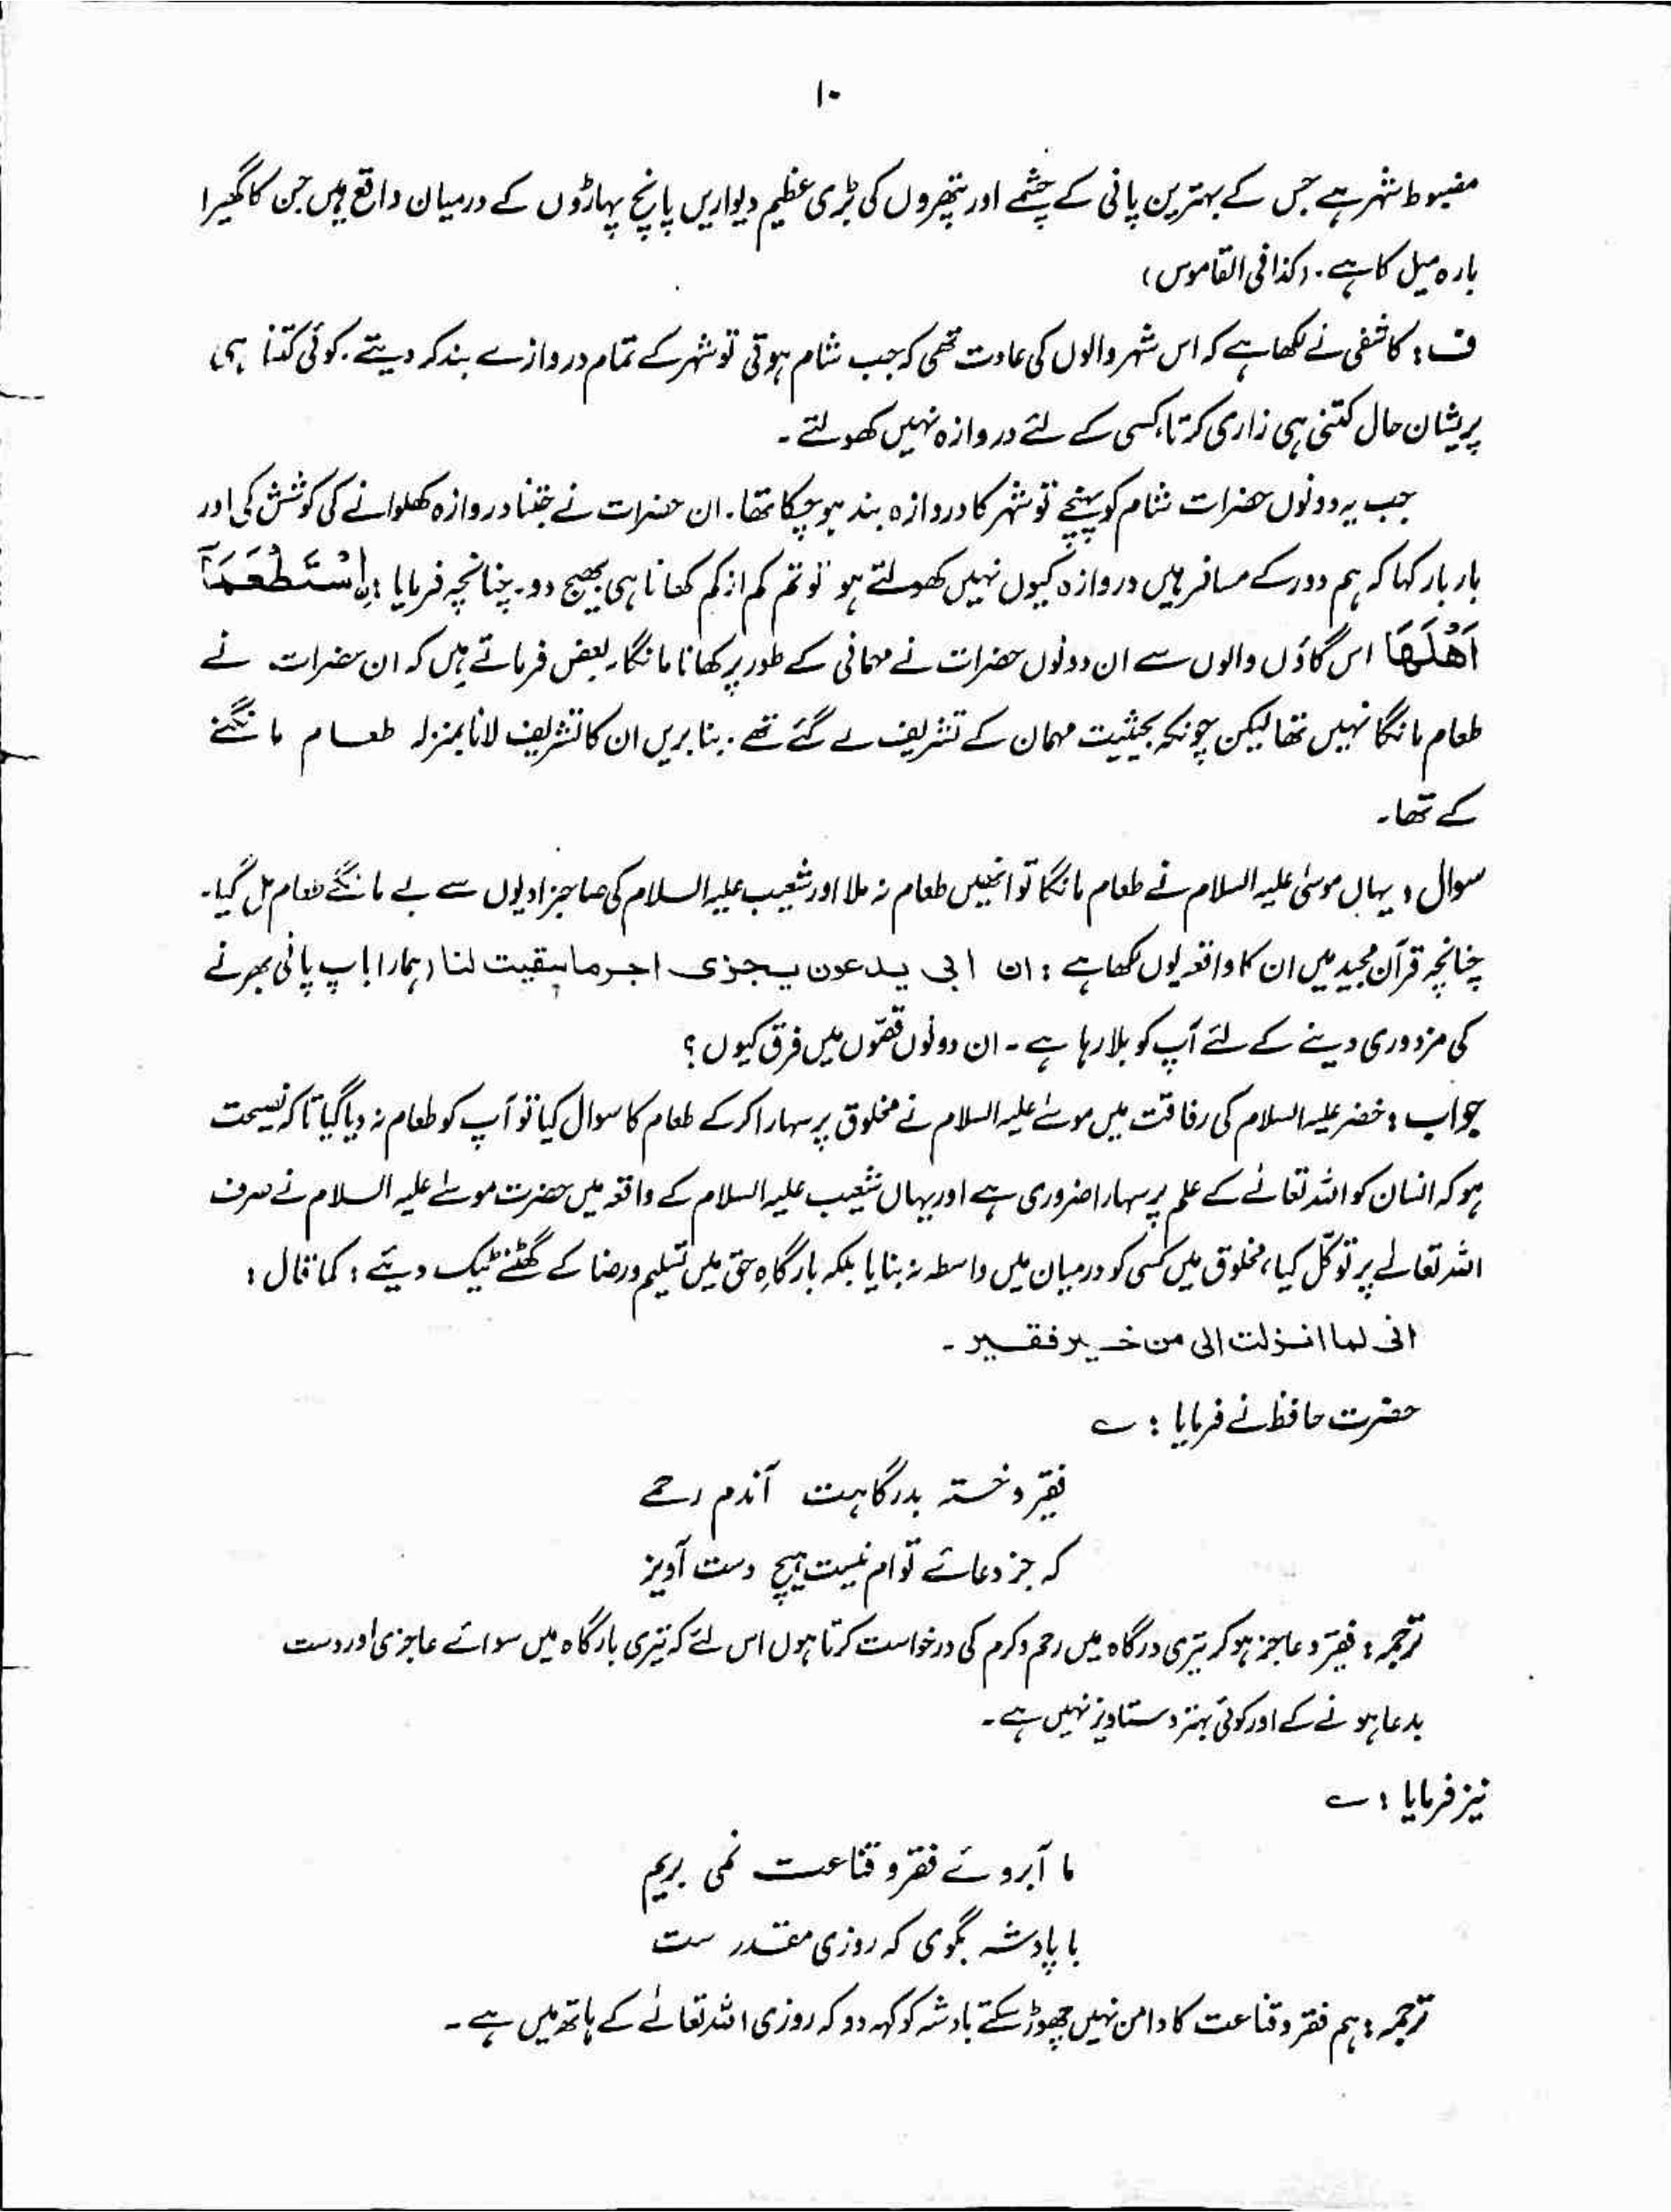 ۱۰
مضبوط شہر ہے جس کے بہترین پانی کے چشمے اور پتھروں کی بڑی عظیم دیواریں پانچ پہاڑوں کے درمیان واقع ہیں جن کا گھیرا
بارہ میل کا ہے۔ (کذا فی القاموس)
ف : کاشفی نے لکھا ہے کہ اس شہر والوں کی عادت تھی کہ جب شام ہوتی تو شہر کے تمام دروازے بند کر دیتے۔ کوئی کتنا ہی
پریشان حال کتنی ہی زاری کرتا، کسی کے لئے دروازہ نہیں کھولتے۔
جب یہ دونوں حضرات شام کو پہنچے تو شہر کا دروازہ بند ہو چکا تھا۔ ان حضرات نے جتنا دروازہ کھلوانے کی کوشش کی اور
بار بار کہا کہ ہم دور کے مسافر ہیں دروازہ کیوں نہیں کھولتے ہو تو تم کم از کم کھانا ہی بھیج دو۔ چنانچہ فرمایا : اِسْتَطْعَمَآ
اَهْلَهَا اس گاؤں والوں سے ان دونوں حضرات نے مہمانی کے طور پر کھانا مانگا۔ بعض فرماتے ہیں کہ ان حضرات نے
طعام مانگا نہیں تھا لیکن چونکہ بحیثیت مہمان کے تشریف لے گئے تھے۔ بنا بریں ان کا تشریف لانا بمنزلہ طعام مانگنے
کے تھا۔
سوال : یہاں موسیٰ علیہ السلام نے طعام مانگا تو انھیں طعام نہ ملا اور شعیب علیہ السلام کی صاحبزادیوں سے بے مانگے طعام مل گیا۔
چنانچہ قرآن مجید میں ان کا واقعہ یوں لکھا ہے : ان ابی یدعون یجزی اجر ما سقیت لنا (ہمارا باپ پانی بھرنے
کی مزدوری دینے کے لئے آپ کو بلا رہا ہے۔ ان دونوں قصّوں میں فرق کیوں؟
جواب : خضر علیہ السلام کی رفاقت میں موسےٰ علیہ السلام نے مخلوق پر سہارا کر کے طعام کا سوال کیا تو آپ کو طعام نہ دیا گیا تاکہ نصیحت
ہو کہ انسان کو اللہ تعالےٰ کے علم پر سہارا ضروری ہے اور یہاں شعیب علیہ السلام کے واقعہ میں حضرت موسےٰ علیہ السلام نے صرف
اللہ تعالےٰ پر توکّل کیا، مخلوق میں کسی کو درمیان میں واسطہ نہ بنایا بلکہ بارگاہِ حق میں تسلیم و رضا کے گھٹنے ٹیک دیئے : کما قال :
انی لما انزلت الی من خیر فقیر۔
حضرت حافظ نے فرمایا : ؎
فقیر و خستہ بدرگاہت آندم رحمے
کہ جز دعائے تو ام نیست ہیچ دست آویز
ترجمہ : فقیر و عاجز ہو کر تیری درگاہ میں رحم و کرم کی درخواست کرتا ہوں اس لئے کہ تیری بارگاہ میں سوائے عاجزی اور دست
بدعا ہونے کے اور کوئی بہتر دستاویز نہیں ہے۔
نیز فرمایا : ؎
ما آبروئے فقر و قناعت نمی بریم
با پادشہ بگوی کہ روزی مقدر ست
ترجمہ : ہم فقر و قناعت کا دامن نہیں چھوڑ سکتے بادشہ کو کہہ دو کہ روزی اللہ تعالےٰ کے ہاتھ میں ہے۔